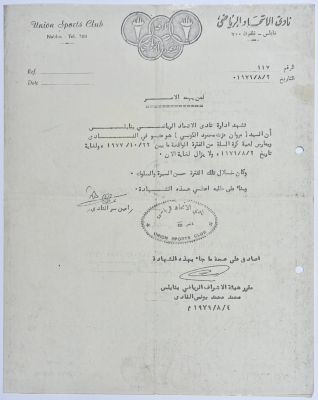 Union Sports Club
Nablus Tel. 700
نادي الاتحاد الرياضي
نابلس - تلفون ٧٠٠
Ref.
Date
الرقم ١١٧
التاريخ ١٩٧٩/٨/٢
لمن يهمه الامر
تشهد ادارة نادي الاتحاد الرياضي بنابلس
أن السيد ( مروان عزت محمود الكوسى ) هو عضو في النادي
ويمارس لعبة كرة السلة من الفترة الواقعة ما بين ١٩٧٧/١٠/٢٢ ولغاية
تاريخ ١٩٧٩/٨/٢ ولا يزال لغاية الان .
وكان خلال تلك الفترة حسن السيرة والسلوك .
وبناء على طلبه اعطي هذه الشهادة .
امين سر النادي
نادي الاتحاد الرياضي
UNION SPORTS CLUB
اصادق على صحة ما جاء بهذه الشهادة
مقرر هيئة الاشراف الرياضي بنابلس
محمد محمد يونس القادري
١٩٧٩/٨/٤ م